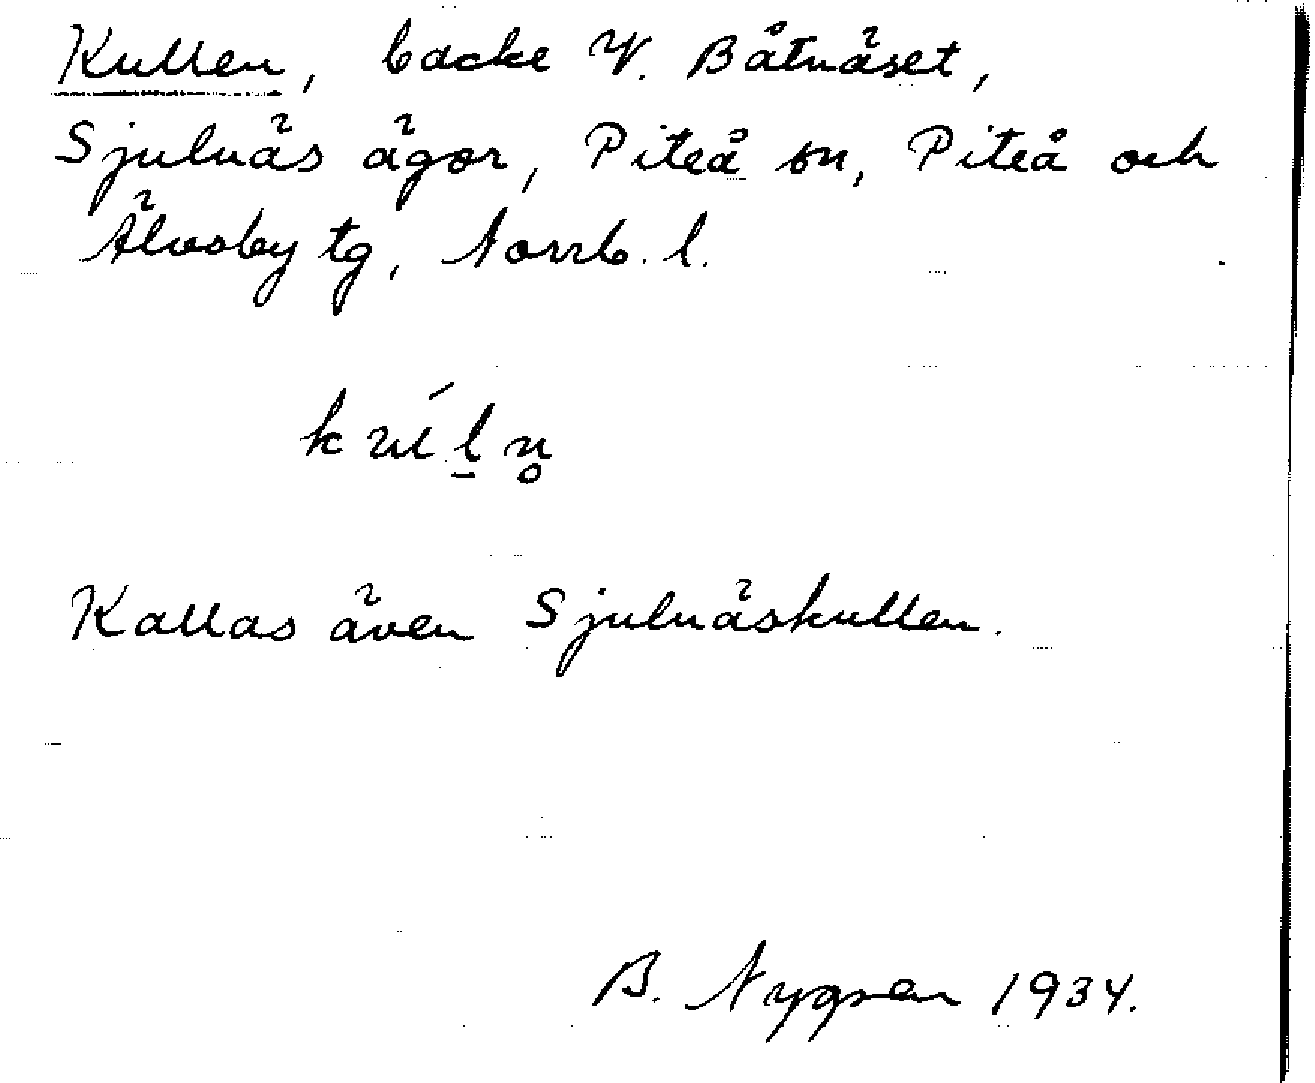 Kullen, backe V. Båtnäset,
Sjulnäs ägor, Piteå sn, Piteå och
Älvsby tg, Norrb. l.
Kallas även Sjulnäskullen.
B. Nygren 1934.